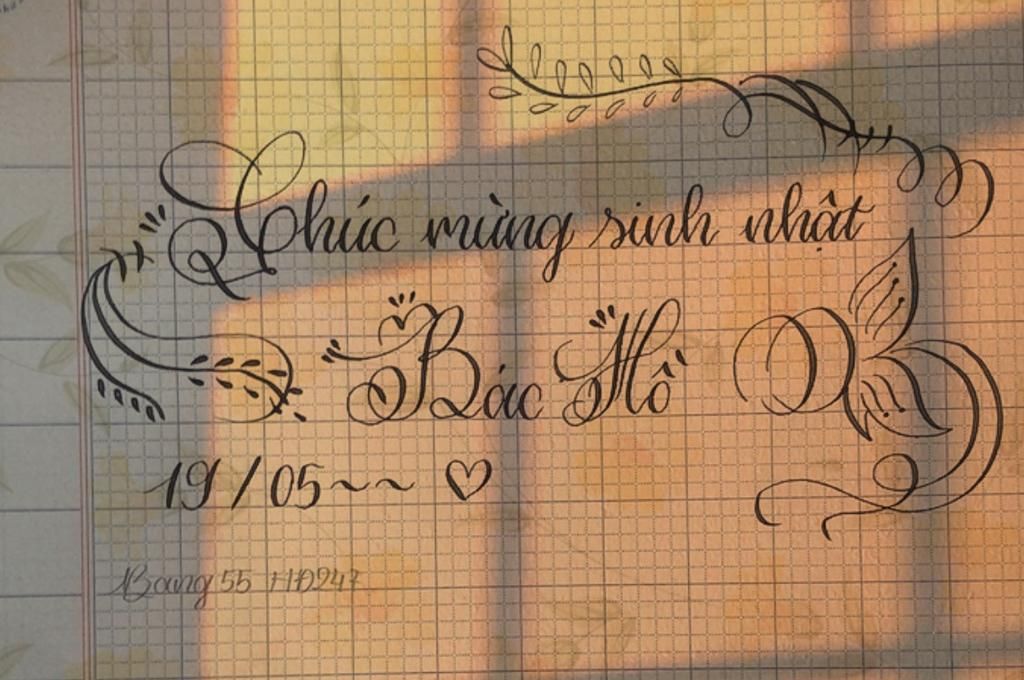 Chúc mừng sinh nhật
Bác Hồ
19/05~~ ♡
Bang 55 HD247